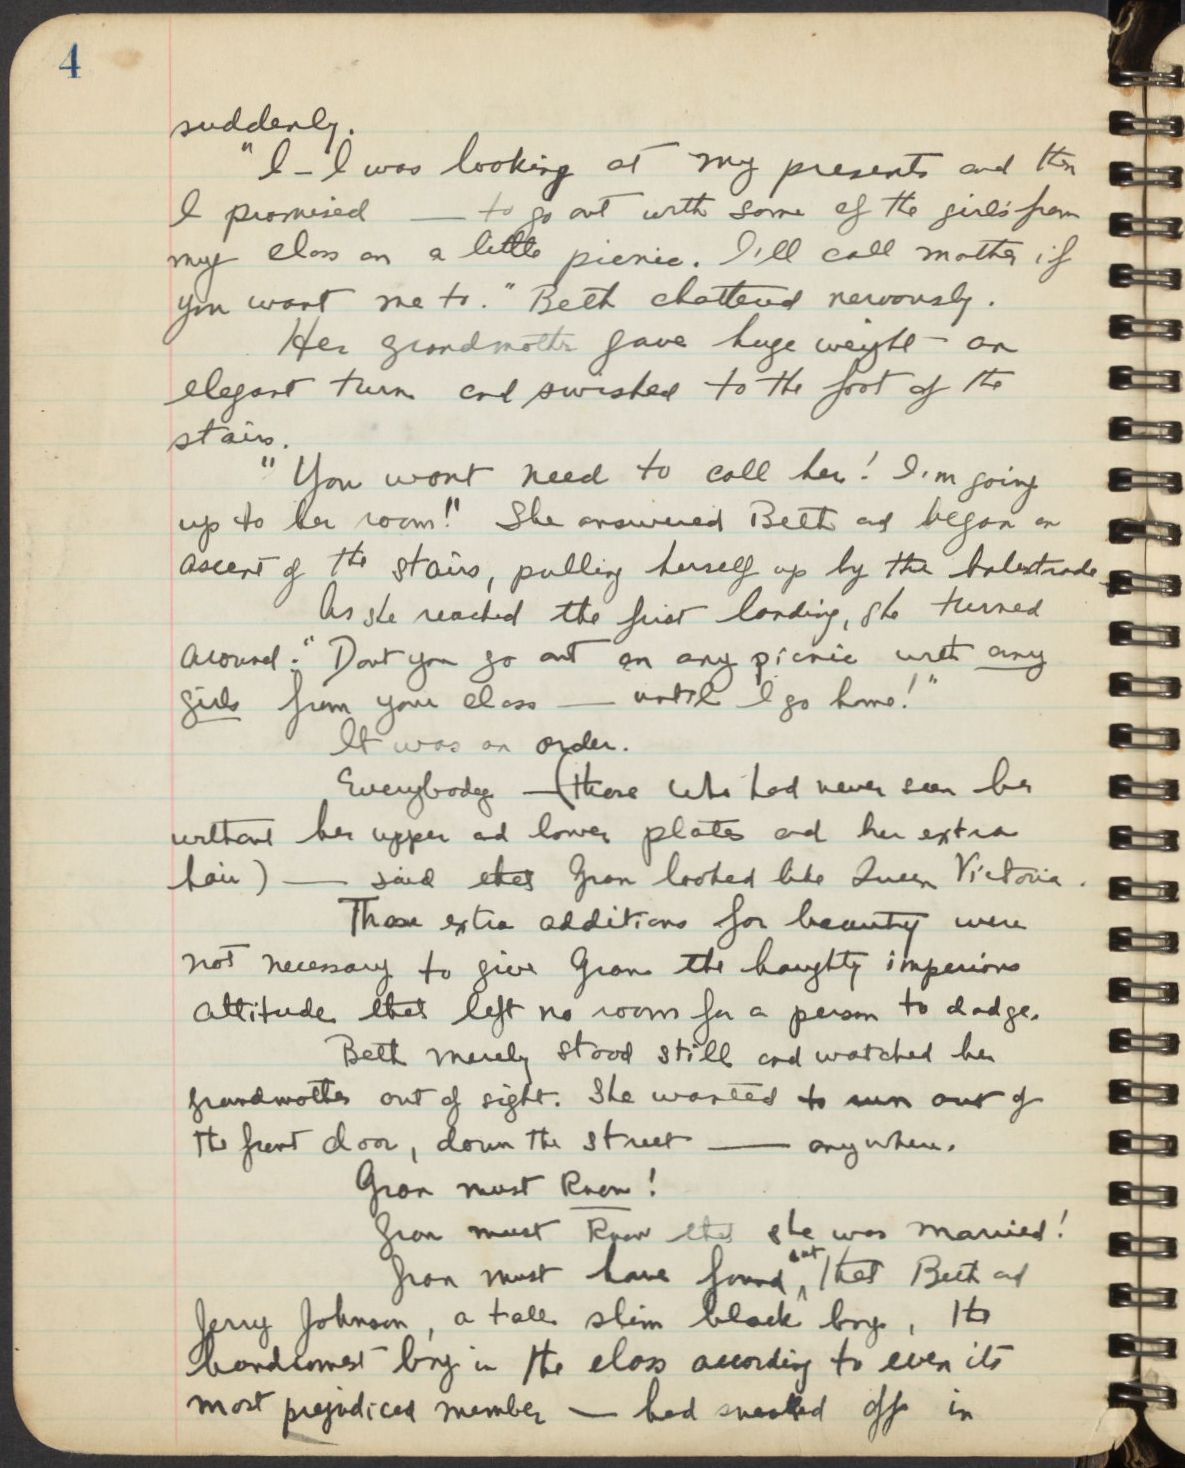 4
suddenly.
"I - I was looking at my presents and then
I promised — to go out with some of the girls from
my class on a little picnic. I'll call mother if
you want me to." Beth chattered nervously.
Her grandmother gave huge weight an
elegant turn and swished to the foot of the
stairs.
"You wont need to call her! I'm going
up to her room!" She answered Beth and began an
ascent of the stairs, pulling herself up by the balustrade.
As she reached the first landing, she turned
around. "Dont you go out on any picnic with any
girls from your class — until I go home!"
It was an order.
Everybody — (those who had never seen her
without her upper and lower plates and her extra
hair) — said that Gran looked like Queen Victoria.
Those extra additions for beauty were
not necessary to give Gran the haughty imperious
attitude that left no room for a person to dodge.
Beth merely stood still and watched her
grandmother out of sight. She wanted to run out of
the front door, down the street — anywhere.
Gran must know!
Gran must know that she was married!
Gran must have found out, that Beth and
Jerry Johnson, a tall slim black boy, the
handsomest boy in the class according to even its
most prejudiced member — had sneaked off in